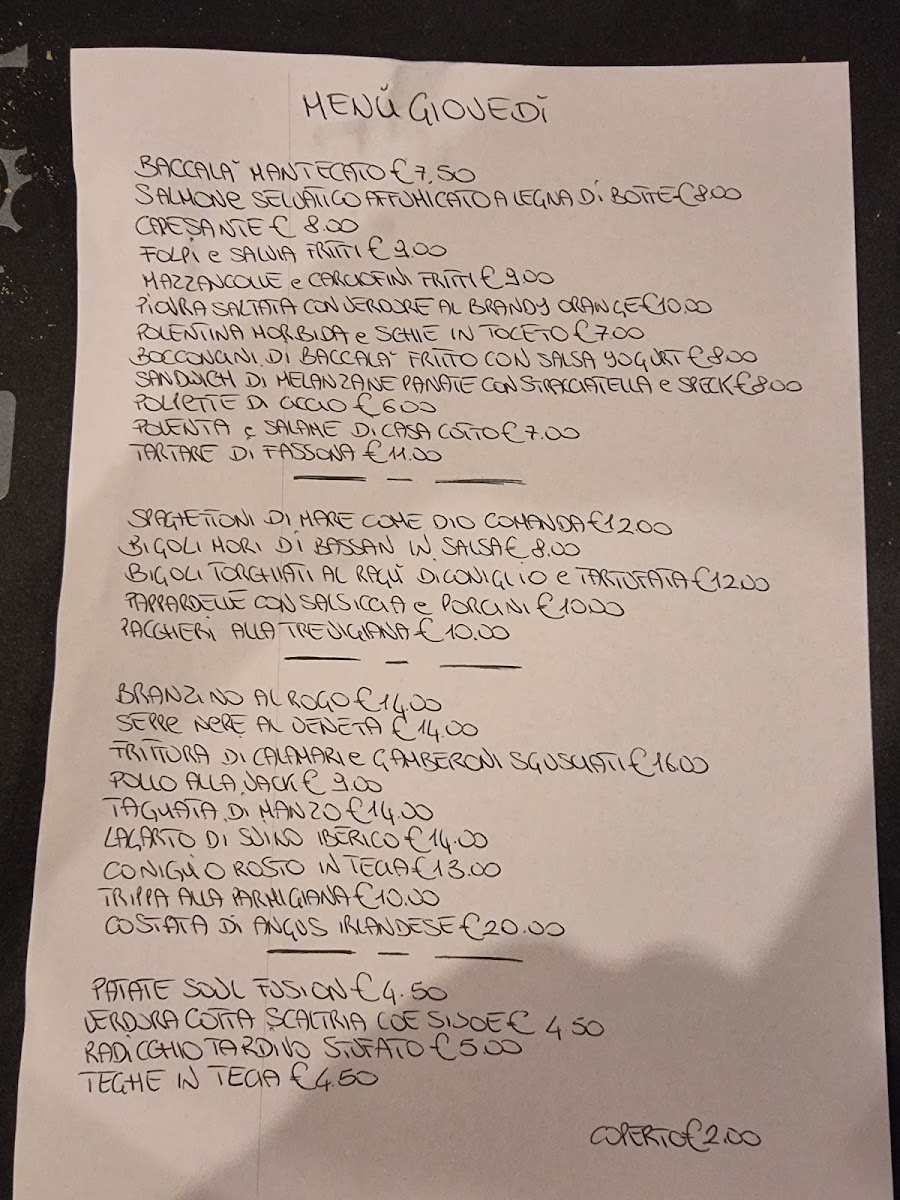 MENÙ GIOVEDÌ
BACCALA' MANTECATO € 7,50
SALMONE SELVATICO AFFUMICATO A LEGNA DI BOTTE € 8.00
CAPESANTE € 8.00
FOLPI e SALVIA FRITTI € 9.00
MAZZANCOLLE e CARCIOFINI FRITTI € 9.00
PIOVRA SALTATA CON VERDURE AL BRANDY ORANGE € 10.00
POLENTINA MORBIDA e SCHIE IN TOCETO € 7.00
BOCCONCINI DI BACCALA' FRITTO CON SALSA YOGURT € 8.00
SANDWICH DI MELANZANE PANATE CON STRACCIATELLA e SPECK € 8.00
POLPETTE DI CICCIO € 6.00
POLENTA e SALAME DI CASA COTTO € 7.00
TARTARE DI FASSONA € 11.00
SPAGHETTONI DI MARE COME DIO COMANDA € 12.00
BIGOLI MORI DI BASSAN IN SALSA € 8.00
BIGOLI TORCHIATI AL RAGÙ DI CONIGLIO e TARTUFATA € 12.00
PAPPARDELLE CON SALSICCIA e PORCINI € 10.00
PACCHERI ALLA TREVIGIANA € 10.00
BRANZINO AL ROGO € 14.00
SEPPE NERE AL VENETA € 14.00
FRITTURA DI CALAMARI e GAMBERONI SGUSCIATI € 16.00
POLLO ALLA JACK € 9.00
TAGLIATA DI MANZO € 14.00
LAGARTO DI SUINO IBERICO € 14.00
CONIGLIO ROSTO IN TECIA € 13.00
TRIPPA ALLA PARMIGIANA € 10.00
COSTATA DI ANGUS IRLANDESE € 20.00
PATATE SOUL FUSION € 4.50
VERDURA COTTA SCALTRIA COE SIVOE € 4.50
RADICCHIO TARDIVO STUFATO € 5.00
TEGHE IN TECIA € 4.50
COPERTO € 2.00